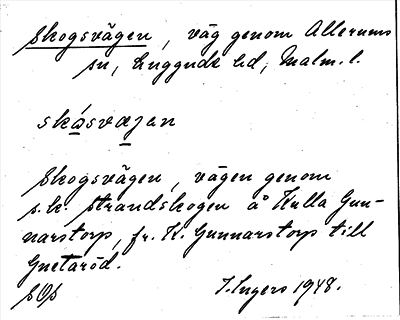 Skogsvägen, väg genom Allerums
sn, Luggude hd, Malm. l.
skåsvæjen
Skogsvägen, vägen genom
s.k. Strandskogen å Kulla Gun-
narstorp, fr. K. Gunnarstorp till
Gnetaröd.
SOS
I. Ingers 1948.